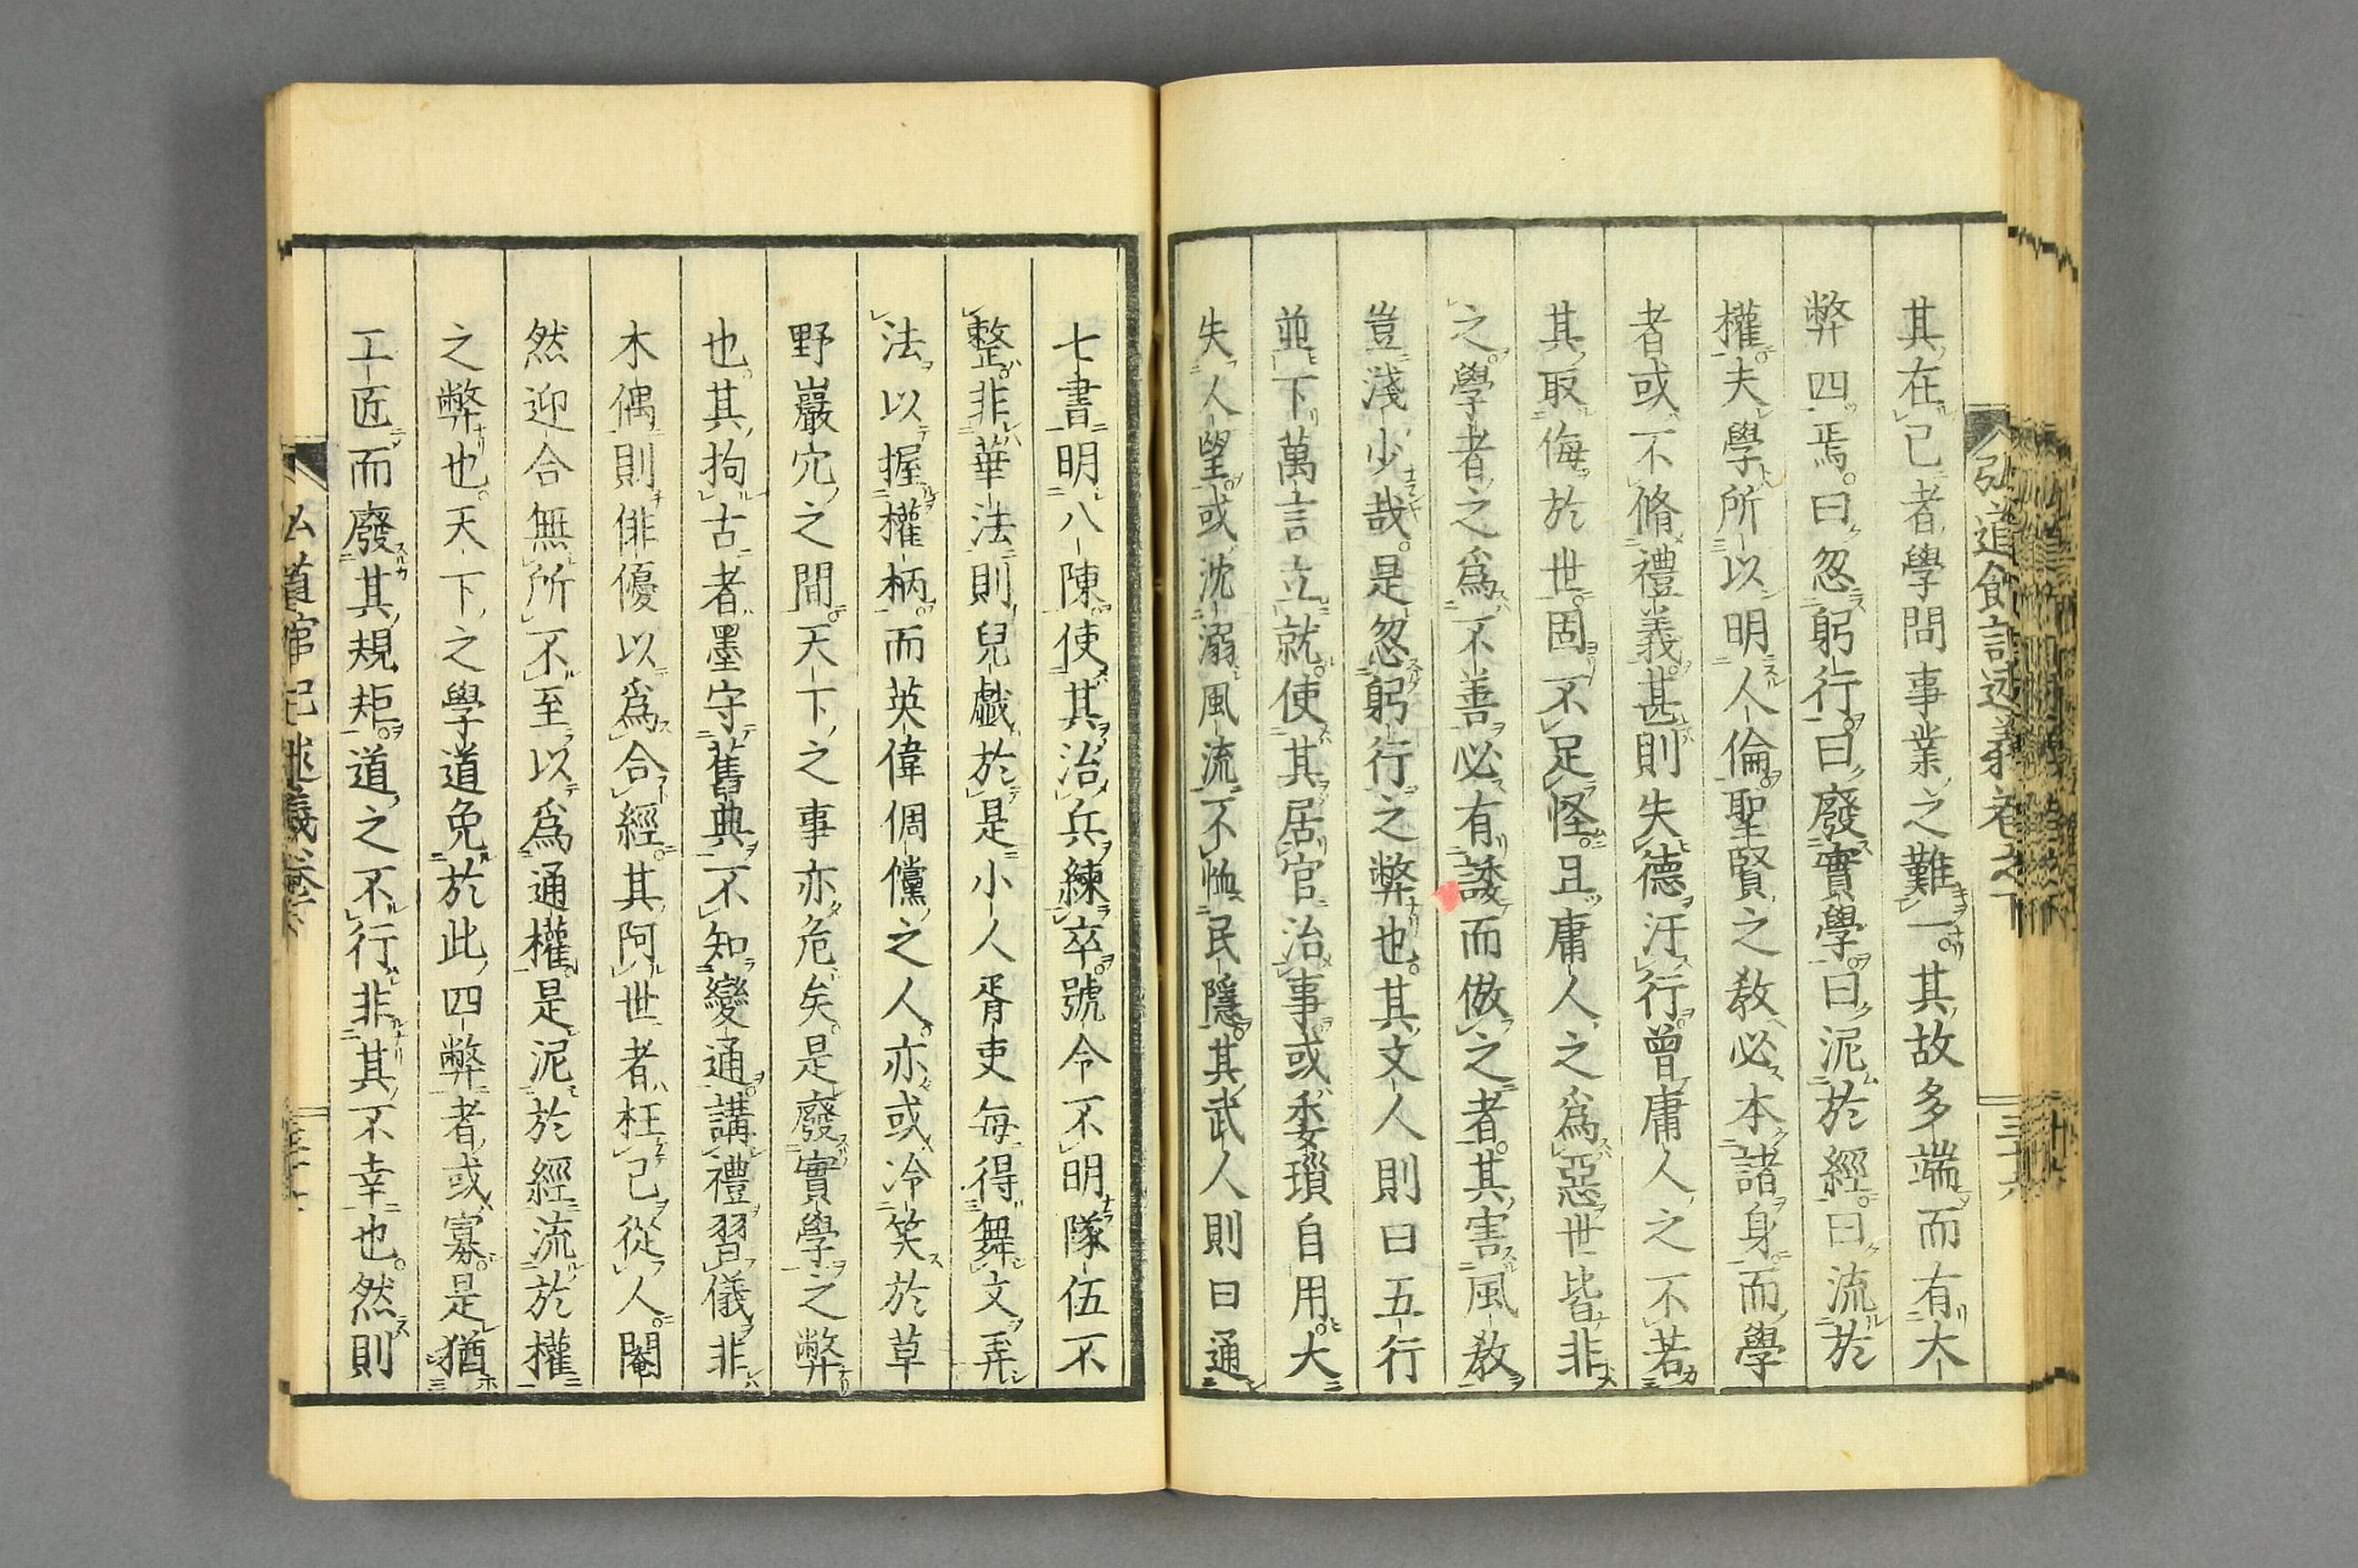 弘道館記述義卷之下
三十六
其在己者學問事業之難一其故多端而有大
弊四焉曰忽躬行曰廢實學曰泥於經曰流於
權夫學所以明人倫聖賢之教必本諸身而學
者或不脩禮義甚則失德汙行曾庸人之不若
其取侮於世固不足怪且庸人之爲惡世皆非
之學者之爲不善必有諉而倣之者其害風教
豈淺少哉是忽躬行之弊也其文人則曰五行
並下萬言立就使其居官治事或委瑣自用大
失人望或沈溺風流不恤民隱其武人則曰通
七書明八陳使其治兵練卒號令不明隊伍不
整非華法則兒戲於是小人胥吏每得舞文弄
法以握權柄而英偉倜儻之人亦或冷笑於草
野巖穴之間天下之事亦危矣是廢實學之弊
也其拘古者墨守舊典不知變通講禮習儀非
木偶則俳優以爲合經其阿世者枉己從人閹
然迎合無所不至以爲通權是泥於經流於權
之弊也天下之學道免於此四弊者或寡是猶
工匠而廢其規矩道之不行非其不幸也然則
道館記述義卷